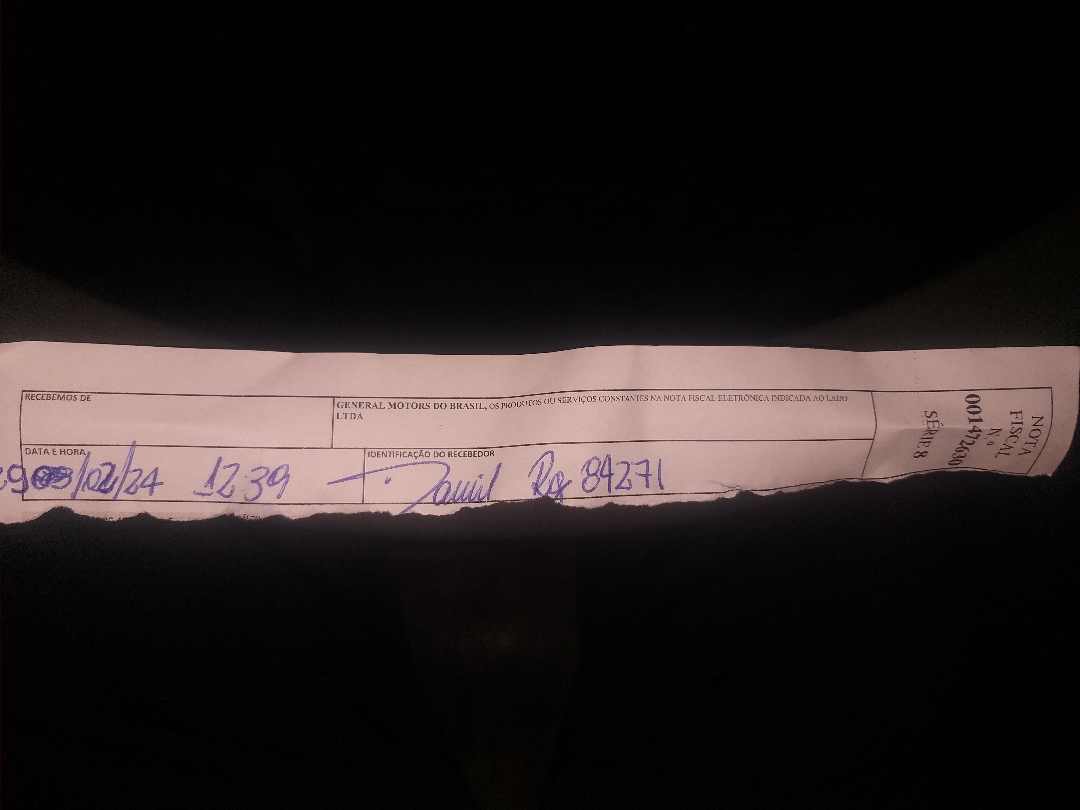 RECEBEMOS DE
GENERAL MOTORS DO BRASIL, OS PRODUTOS OU SERVIÇOS CONSTANTES NA NOTA FISCAL ELETRÔNICA INDICADA AO LADO
LTDA
DATA E HORA
29/02/24 12:39
IDENTIFICAÇÃO DO RECEBEDOR
Rg 84271
NOTA
FISCAL
N.º
001472630
SÉRIE 8